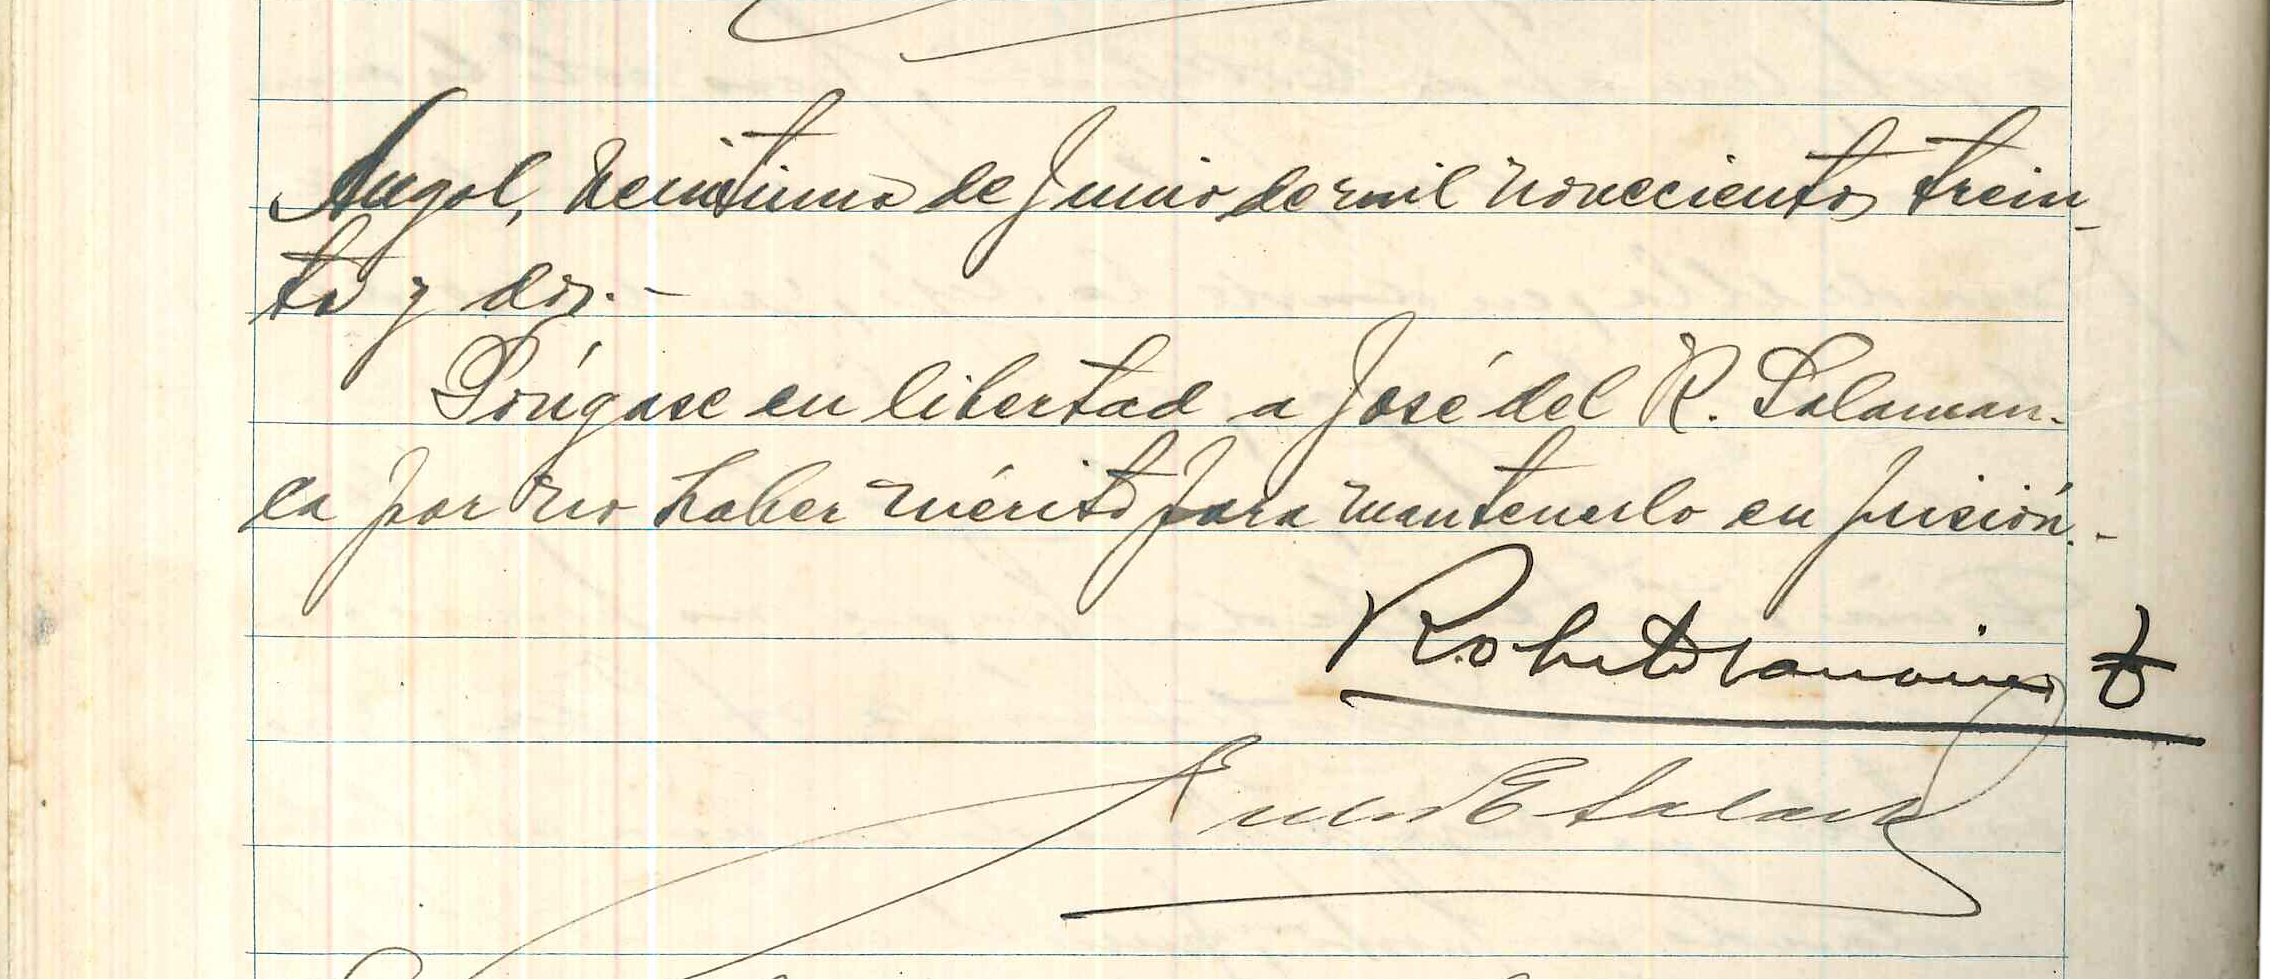 Angol, veintiuno de Junio de mil novecientos trein-
ta y dos.-
Póngase en libertad a José del R. Salaman-
ca por no haber mérito para mantenerlo en prisión.-
Roberto